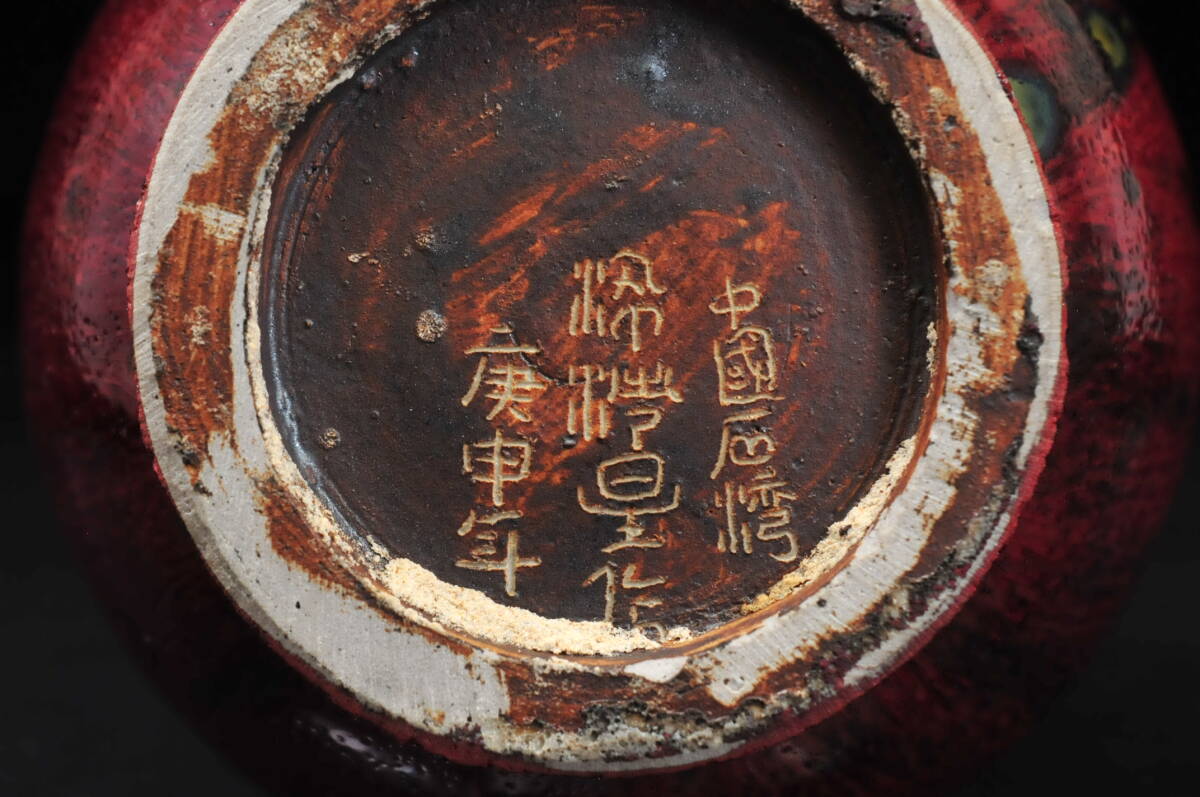 中國石灣
梁作
庚申年